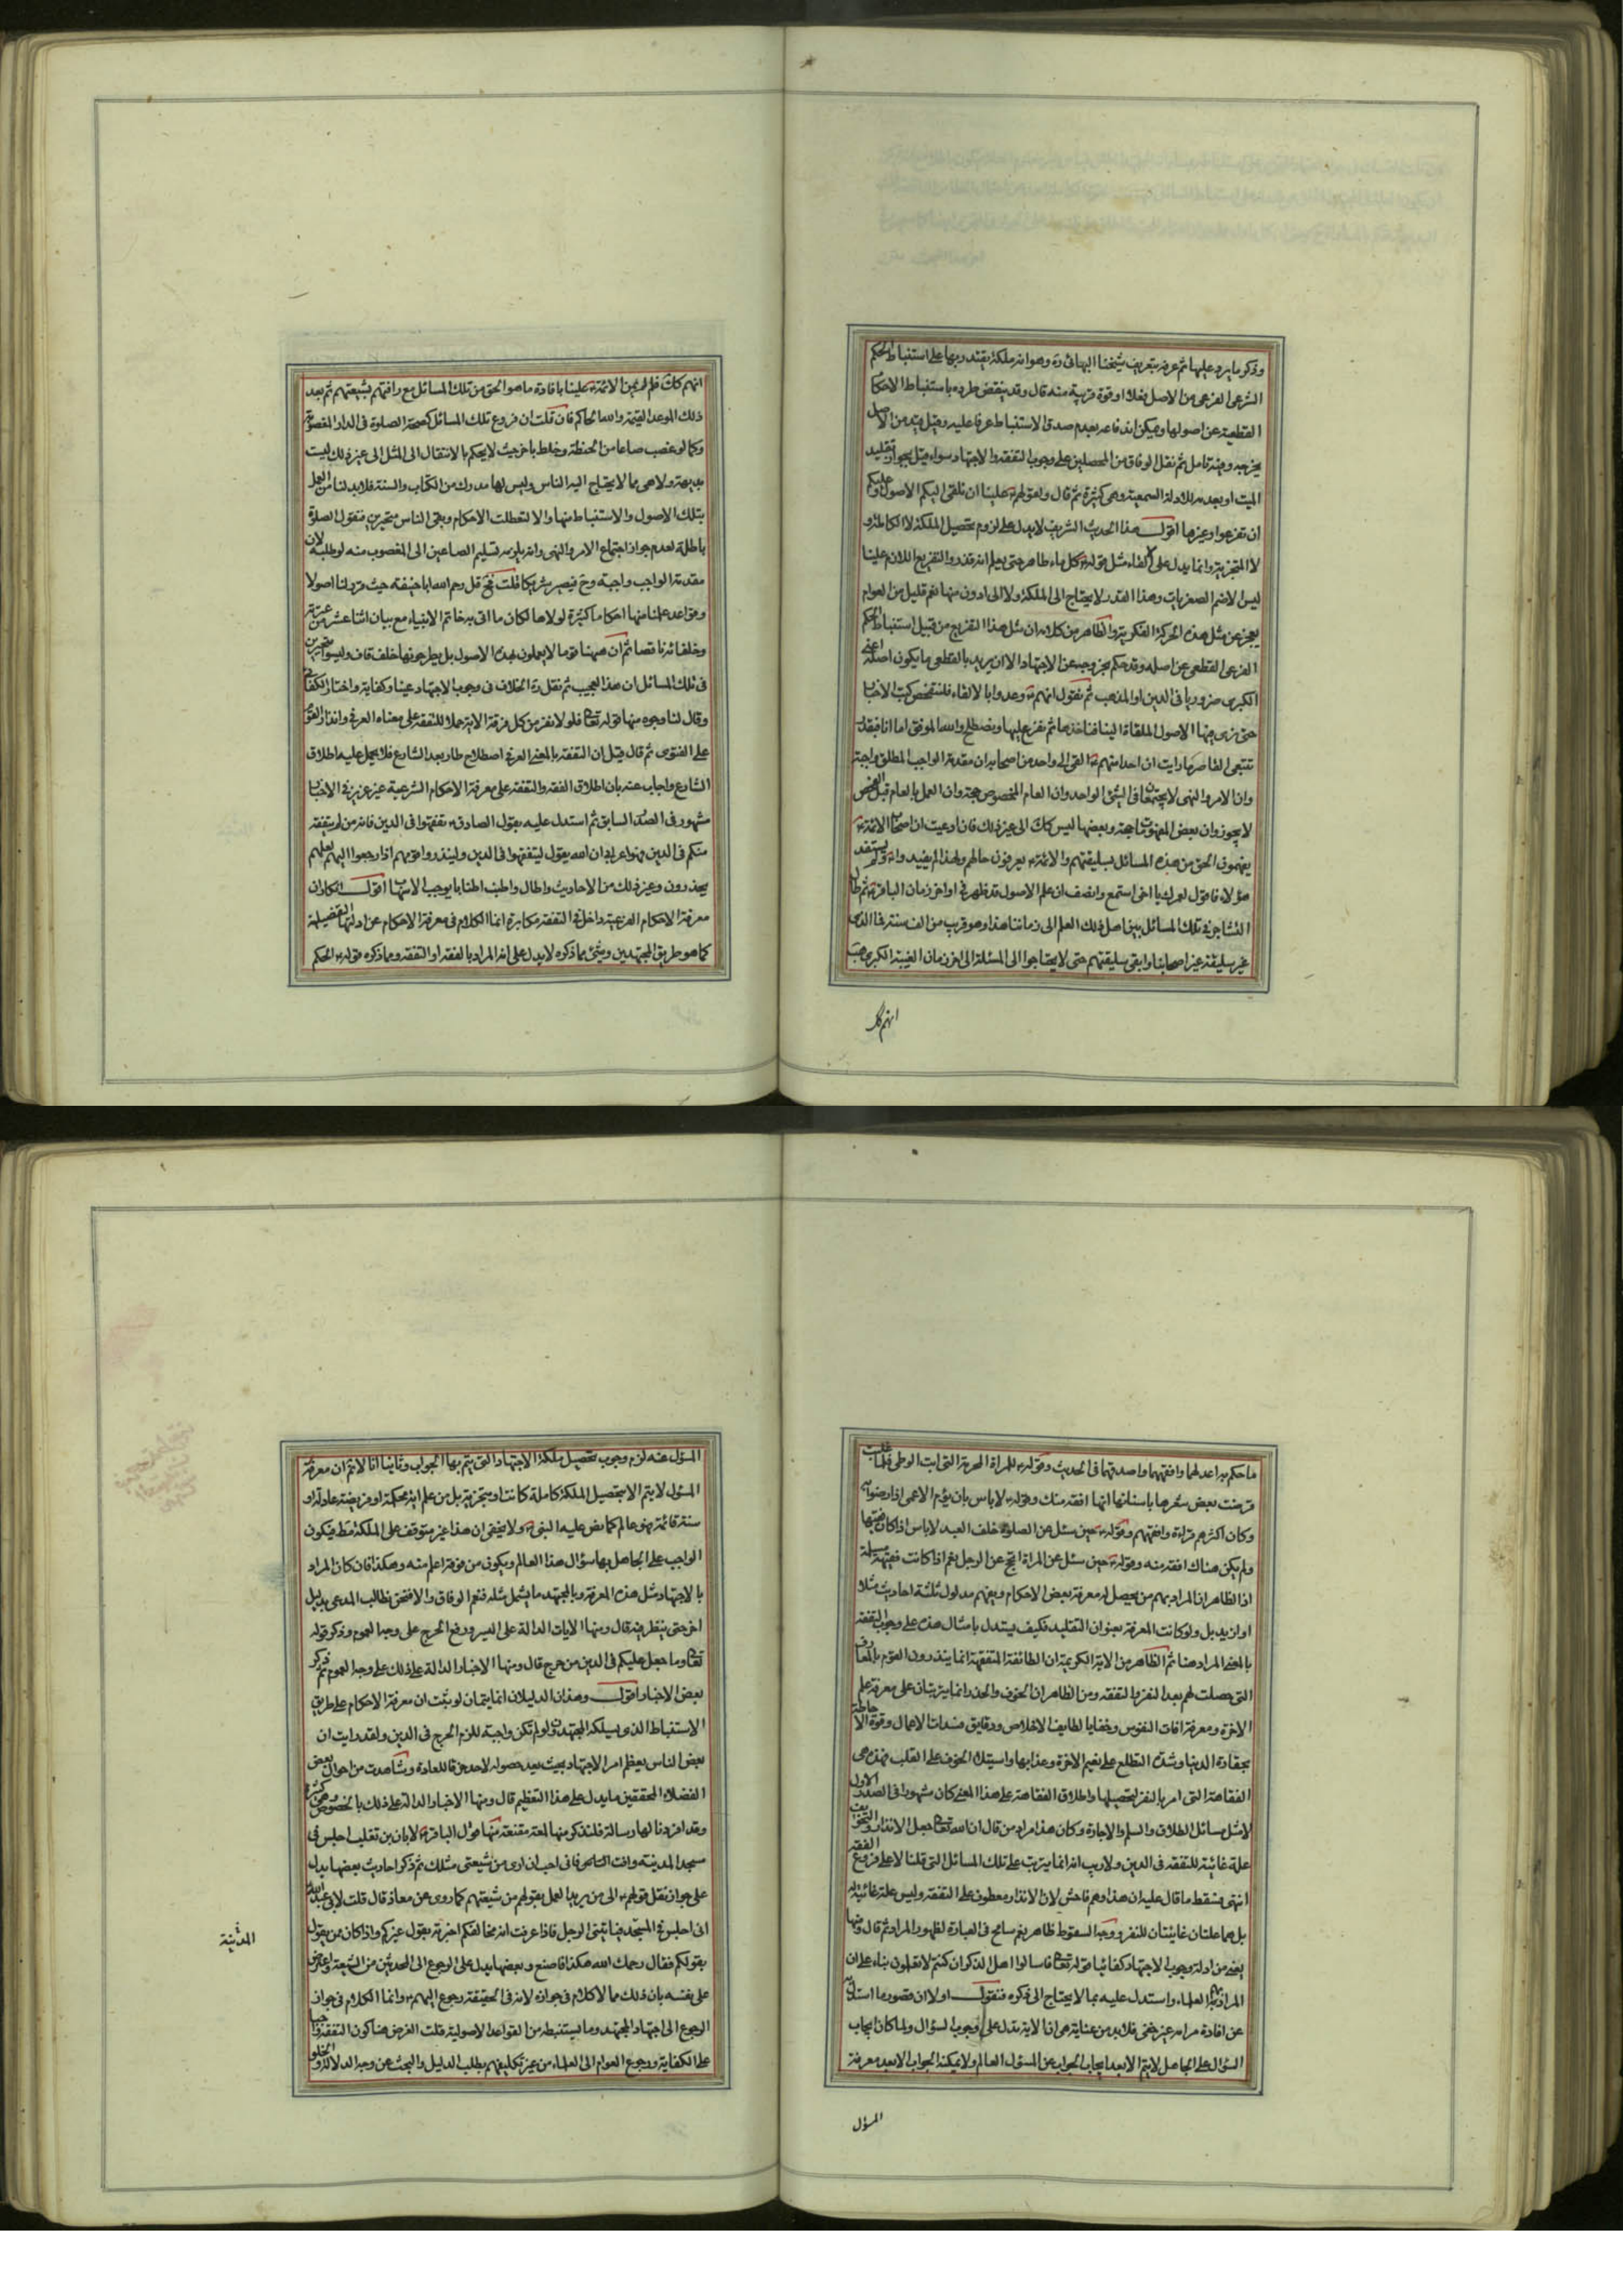 وذكر ما يرد عليها ثم عرفه بتعريف شيخنا البهائي ره وهو انه ملكة يقتدر بها على استنباط الحكم
الشرعي الفرعي من الاصل فعلا او قوة قريبة منه قال وقد ينقض طرده باستنباط الاحكام
القطعية عن اصولها ويمكن اندفاعه بعدم صدق الاستنباط عرفا عليه وقيل قيد من الاصل
يخرجه وفيه تامل ثم نقل الوفاق من المحصلين على وجوب التفقه والاجتهاد سواء قيل بجواز تقليد
الميت او بعدمه للادلة السمعية وهي كثيرة ثم قال ولقولهم علينا ان نلقي اليكم الاصول وعليكم
ان تفرعوا وغيرها اقول هذا الحديث الشريف لا يدل على لزوم تحصيل الملكة لا الكاملة و
لا المتجزية وانما يدل على الفاء مثل قوله كل ماء طاهر حتى يعلم انه قذر والتفريع اللازم علينا
ليس الا ضم الصغريات وهذا القدر لا يحتاج الى الملكة ولا الى ادون منها نعم قليل من العوام
يعجز عن مثل هذه الحركة الفكرية والظاهر من كلامه ان مثل هذا التفريع من قبيل استنباط الحكم
الفرعي القطعي عن اصله وقد حكم بخروجه عن الاجتهاد الا ان يريد بالقطعي ما يكون اصله اعني
الكبرى ضروريا في الدين او المذهب ثم نقول انهم وعدوا بالالقاء فلنتفحص كتب الاخبار
حتى نرى فيها الاصول الملقاة الينا فناخذها ثم نفرع عليها ونصطلح والله الموفق اما انا فبقدر
تتبعي القاصر ما رايت ان احدا منهم القى الى واحد من اصحابه ان مقدمة الواجب المطلق واجبة
وان الامر والنهي لا يجتمعان في الشئ الواحد وان العام المخصوص حجة وان العمل بالعام قبل الفحص
لا يجوز وان بعض المفهومات حجة وبعضها ليس كك الى غير ذلك فان ادعيت ان اصحاب الائمة
يفهمون الحق من هذه المسائل بسليقتهم والائمة يعرفون حالهم ولهذا لم يفيدوا ولم يستفد
هؤلاء فاقول لعمرك يا اخي استمع وانصف ان علم الاصول قد ظهر في اواخر زمان الباقر ثم طال
التشاجر في تلك المسائل بين اهل ذلك العلم الى زماننا هذا وهو قريب من الف سنة فما الذي
غير سليقة غير اصحابنا وابقى سليقتهم حتى لا يحتاجوا الى المسئلة الى اخر زمان الغيبة الكبرى هب
انهم كك
انهم كك فلم لم يمن الائمة علينا بافادة ما هو الحق من تلك المسائل مع رافتهم بشيعتهم ثم بعد
ذلك الموعد القيمة والله الحاكم فان قلت ان فروع تلك المسائل كصحة الصلوة في الدار المغصوبة
وكما لو غصب صاعا من الحنطة وخلط باخر حيث لا يحكم بالانتقال الى المثل الى غير ذلك ليست
بديهية ولا هي مما لا يحتاج اليه الناس وليس لها مدرك من الكتاب والسنة فلا بد لنا من العمل
بتلك الاصول والاستنباط منها والا لتعطلت الاحكام وبقي الناس متحيرين فنقول الصلوة
باطلة لعدم جواز اجتماع الامر والنهي وانه يلزمه تسليم الصاعين الى المغصوب منه لو طلبه لان
مقدمة الواجب واجبة وح فيصير شريكا قلت فح قل رحم الله ابا حنيفة حيث قرر لنا اصولا
وقواعد علمنا منها احكاما كثيرة لولاها لكان ما اتى به خاتم الانبياء مع بيان اثنا عشر من عترته
وخلفائه ناقصا ثم ان ههنا قوما لا يعملون بهذه الاصول بل يطرحونها خلف قاف وليسوا متحيرين
في تلك المسائل ان هذا لعجيب ثم نقل ره الخلاف في وجوب الاجتهاد عينا وكفاية واختار الكفائي
وقال لنا وجوه منها قوله تعالى فلولا نفر من كل فرقة الاية حملا للتفقه على معناه العرفي وانذار القوم
على الفتوى ثم قال قيل ان التفقه بالمعنى العرفي اصطلاح طار بعد الشارع فلا يحمل عليه اطلاق
الشارع واجاب عنه بان اطلاق الفقه والتفقه على معرفة الاحكام الشرعية غير عزيز في الاخبار
مشهور في الصدر السابق ثم استدل عليه بقول الصادق تفقهوا في الدين فانه من لم يتفقه
منكم في الدين فهو اعرابي ان الله يقول ليتفقهوا في الدين ولينذروا قومهم اذا رجعوا اليهم لعلهم
يحذرون وغير ذلك من الاحاديث واطال واطنب اطنابا يوجب الاسهاب اقول انكار ان
معرفة الاحكام الفرعية داخل في التفقه مكابرة انما الكلام في معرفة الاحكام عن ادلتها التفصيلية
كما هو طريق المجتهدين وشئ مما ذكره لا يدل على انه المراد بالفقه او التفقه ومما ذكره قوله الحكم
ما حكم به اعدلهما وافقههما واصدقهما في الحديث وقوله للمراة المحرمة التي ابت الوطي فلما غلبت
قرضت بعض شعرها باسنانها انها افقه منك وقوله لا باس بان يؤم الاعمى اذا رضوا به
وكان اكثرهم قراءة وافقههم وقوله حين سئل عن الصلوة خلف العبد لا باس اذا كان فقيها
ولم يكن هناك افقه منه وقوله حين سئل عن المراة اتحج عن الرجل نعم اذا كانت فقيهة مسلمة
اذ الظاهر ان المراد بهم من يحصل له معرفة بعض الاحكام ويفهم مدلول ثلثة احاديث مثلا
او ازيد بل ولو كانت المعرفة بعنوان التقليد فكيف يستدل بامثال هذه على وجوب التفقه
بالمعنى المراد هنا ثم الظاهر من الاية الكريمة ان الطائفة المتفقهة انما ينذرون القوم بالمعارف
التي حصلت لهم بعد النفر بالتفقه ومن الظاهر ان الخوف والحذر انما يترتبان على معرفة علم
الاخرة ومعرفة افات النفوس وخفايا لطايف الاخلاص ودقايق مفسدات الاعمال وقوة الاحاطة
بحقارة الدنيا وشدة التطلع على نعيم الاخرة وعذابها واستيلاء الخوف على القلب فهذه هي
الفقاهة التي امر بالنفر لتحصيلها واطلاق الفقاهة على هذا المعنى كان مشهورا في الصدر الاول
لا مثل مسائل الطلاق والسلم والاجارة وكان هذا مراد من قال ان الله تعالى جعل الانذار والتخويف
علة غائية للتفقه في الدين ولا ريب انه انما يترتب على تلك المسائل التي قلنا لا على فروع الفقه
انتهى فسقط ما قال عليه ان هذا وهم فاحش لان الانذار معطوف على التفقه وليس علة غائية له
بل هما علتان غائيتان للنفر ووجه السقوط ظاهر نعم سامح في العبارة لظهور المراد ثم قال ومنها
يعني من ادلة وجوب الاجتهاد كفائيا قوله تعالى فاسالوا اهل الذكر ان كنتم لا تعلمون بناء على ان
المراد بهم العلماء واستدل عليه بما لا يحتاج الى ذكره فنقول اولا ان قصور ما استدل به
عن افادة مرامه غير خفي فلا بد من عناية هي ان الاية تدل على وجوب السؤال ولما كان ايجاب
السؤال على الجاهل لا يتم الا بعد ايجاب الجواب عن المسؤل العالم ولا يمكنه الجواب الا بعد معرفة
المسؤل
المسؤل عنه لزم وجوب تحصيل ملكة الاجتهاد التي يتم بها الجواب وثانيا انا لا نم ان معرفة
المسؤل لا يتم الا بتحصيل الملكة كاملة كانت او متجزية بل من علم اية محكمة او فريضة عادلة او
سنة قائمة فهو عالم كما نص عليه النبي ولا يخفى ان هذا غير متوقف على الملكة قط فيكون
الواجب على الجاهل بها سؤال هذا العالم ويكون من فوقه اعلم منه وهكذا فان كان المراد
بالاجتهاد مثل هذه المعرفة وبالمجتهد ما يشمل مثله فنعم الوفاق والا فنحن نطالب المدعي بدليل
اخر حتى ينظر فيه قال ومنها الايات الدالة على اليسر ورفع الحرج على وجه العموم وذكر قوله
تعالى وما جعل عليكم في الدين من حرج قال ومنها الاخبار الدالة على ذلك على وجه العموم ثم ذكر
بعض الاخبار اقول وهذان الدليلان انما يتمان لو ثبت ان معرفة الاحكام على طريق
الاستنباط الذي يسلكه المجتهدون لو لم تكن واجبة للزم الحرج في الدين ولقد رايت ان
بعض الناس يعظم امر الاجتهاد بحيث يعد حصوله لاحد خرقا للعادة وشاهدت من احوال بعض
الفضلاء المحققين ما يدل على هذا التعظيم قال ومنها الاخبار الدالة على ذلك بالخصوص وهي كثيرة
وقد افردنا لها رسالة فلنذكر منها لمعة مقنعة منها قول الباقر لابان بن تغلب اجلس في
مسجد المدينة وافت الناس فاني احب ان ارى من شيعتي مثلك ثم ذكر احاديث بعضها يدل
على جواز نقل قولهم الى من يريد العمل بقولهم من شيعتهم كما روي عن معاذ قال قلت لابي عبد الله
اني اجلس في المسجد فياتيني الرجل فاذا عرفت انه يخالفكم اخبرته بقول غيركم واذا كان ممن يقول
بقولكم فقال رحمك الله هكذا فاصنع وبعضها يدل على الرجوع الى المحدثين من الشيعة واعترض
على نفسه بان ذلك مما لا كلام في جوازه لانه في الحقيقة رجوع اليهم وانما الكلام في جواز
الرجوع الى اجتهاد المجتهد وما يستنبطه من القواعد الاصولية قلت الغرض هنا كون التفقه واجبا
على الكفاية ورجوع العوام الى العلماء من غير تكليفهم بطلب الدليل والبحث عن وجه الدلالة
المدينة